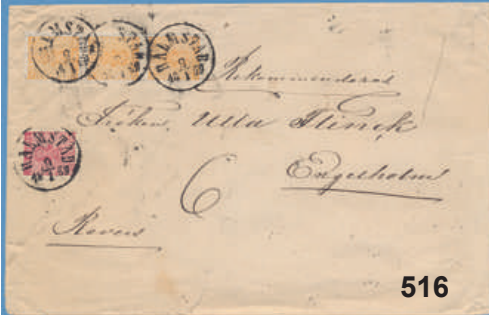 HALMSTAD
HALMSTAD
HALMSTAD
Rekommenderas
Fröken Ulla Flinck
HALMSTAD
Engelholm
6
Revers
516